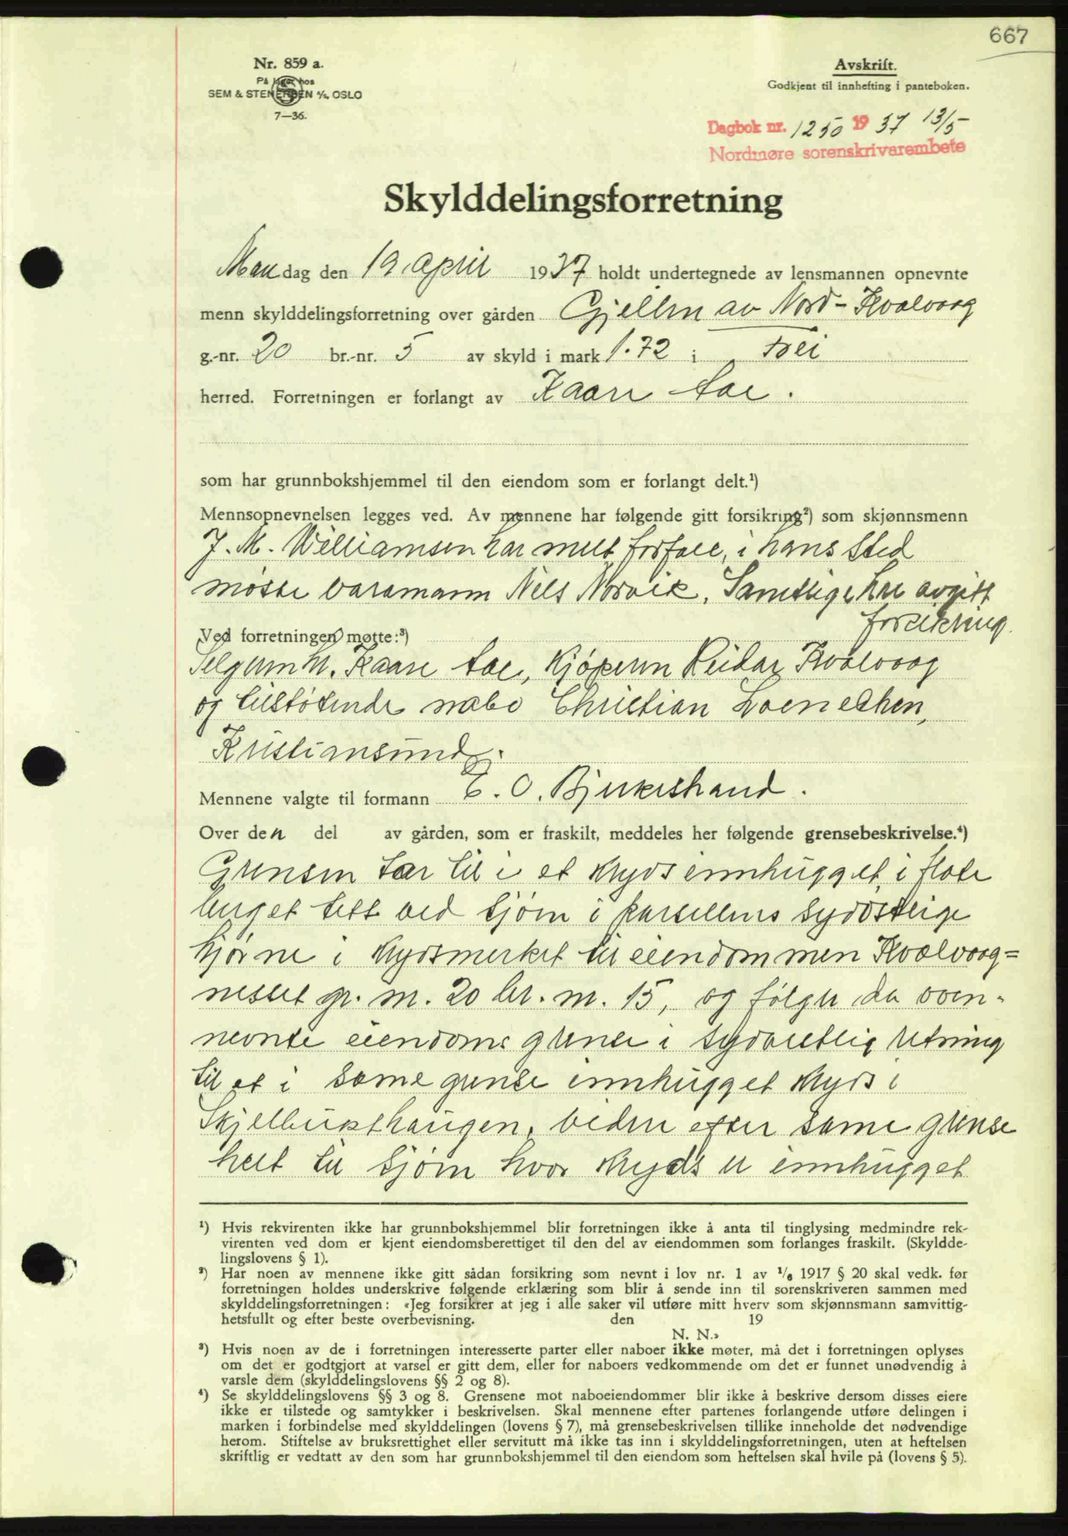 667
Nr. 859 a.
På lager hos
SEM & STENERSEN A/S, OSLO
7—36.
Avskrift.
Godkjent til innhefting i panteboken.
Dagbok nr. 1250 19 37 13/5
Nordmøre sorenskriverembete
Skylddelingsforretning
Mandag den 19 april 1937 holdt undertegnede av lensmannen opnevnte
menn skylddelingsforretning over gården Gjellen av Nord-Kvalvaag
g.-nr. 20 br.-nr. 5 av skyld i mark 1.72 i Frei
herred. Forretningen er forlangt av Kaare Aae.
som har grunnbokshjemmel til den eiendom som er forlangt delt.¹)
Mennsopnevnelsen legges ved. Av mennene har følgende gitt forsikring²) som skjønnsmenn
J. M. Williamsen har meldt forfall, i hans sted
møtte varamann Nils Norvik. Samtlige har avgitt
forsikring.
Ved forretningen møtte:³)
Selgeren hr. Kaare Aae, kjøperen Reidar Kvalvaag
og tilstøtende nabo Christian Loennechen,
Kristiansund.
Mennene valgte til formann E. O. Bjerkestrand.
Over den del av gården, som er fraskilt, meddeles her følgende grensebeskrivelse.⁴)
Grensen tar til i et kryds innhugget i flate
berget tett ved sjøen i parsellens sydøstlige
hjørne i krydsmerket til eiendommen Kvalvaag=
nesset gr. nr. 20 br. nr. 15, og følger da oven-
nevnte eiendoms grense i sydvestlig retning
til et i same grense innhugget kryds i
Skjelbuesthaugen, videre efter same grense
helt til sjøen hvor kryds er innhugget
¹) Hvis rekvirenten ikke har grunnbokshjemmel blir forretningen ikke å anta til tinglysing medmindre rek-
virenten ved dom er kjent eiendomsberettiget til den del av eiendommen som forlanges fraskilt. (Skyldde-
lingslovens § 1).
²) Har noen av mennene ikke gitt sådan forsikring som nevnt i lov nr. 1 av 1/6 1917 § 20 skal vedk. før
forretningen holdes underskrive følgende erklæring som blir å sende inn til sorenskriveren sammen med
skylddelingsforretningen: «Jeg forsikrer at jeg i alle saker vil utføre mitt hverv som skjønnsmann samvittig-
hetsfullt og efter beste overbevisning. den 19
N. N.»
³) Hvis noen av de i forretningen interesserte parter eller naboer ikke møter, må det i forretningen oplyses
om det er godtgjort at varsel er gitt dem, eller for naboers vedkommende om det er funnet unødvendig å
varsle dem (skylddelingslovens §§ 2 og 8).
⁴) Se skylddelingslovens §§ 3 og 8. Grensene mot naboeiendommer blir ikke å beskrive dersom disses eiere
ikke er tilstede og samtykker i beskrivelsen. Skal mennene efter partenes forlangende utføre delingen i
marken i forbindelse med skylddelingen (lovens § 7), må grensebeskrivelsen tillike inneholde det nødvendige
herom. Stiftelse av bruksrettighet eller servitutt må ikke tas inn i skylddelingsforretningen, uten at heftelsen
skriftlig er vedtatt av den som har grunnbokshjemmel til den eiendom som heftelsen skal hvile på (lovens § 5).